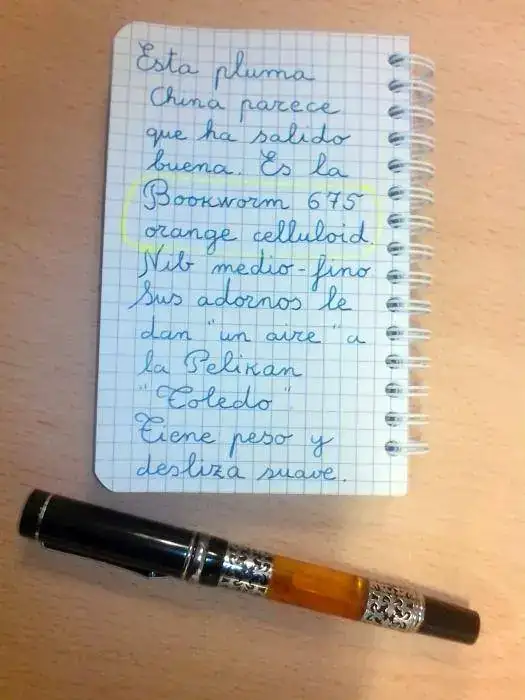 Esta pluma
China parece
que ha salido
buena. Es la
Bookworm 675
orange celluloid.
Nib medio-fino
Sus adornos le
dan "un aire" a
la Pelikan
"Toledo"
Tiene peso y
desliza suave.